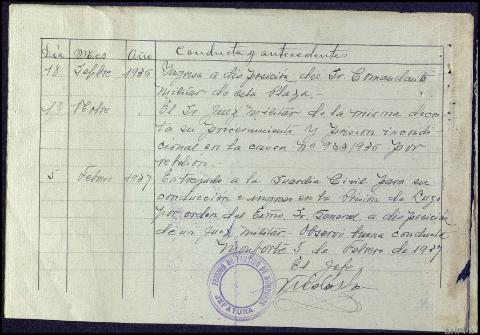 Día Mes Año Conducta y antecedentes
18 Sepbre 1936 Ingresa a disposición del Sr. Comandante
Militar de esta Plaza.-
13 Nobre " El Sr. Juez Militar de la misma decre-
ta su procesamiento y prision incondi
cional en la causa nº 933/1936 por
rebelion.-
5 Febrero 1937 Entregado a la Guardia Civil para su
conducción e ingreso en la Prision de Lugo
por orden del Excmo. Sr. General a disposición
de un Juez militar.- Observó buena conducta
Monforte 5 de Febrero de 1937
El Jefe,
PRISION DE PARTIDO DE MONFORTE
JEFATURA